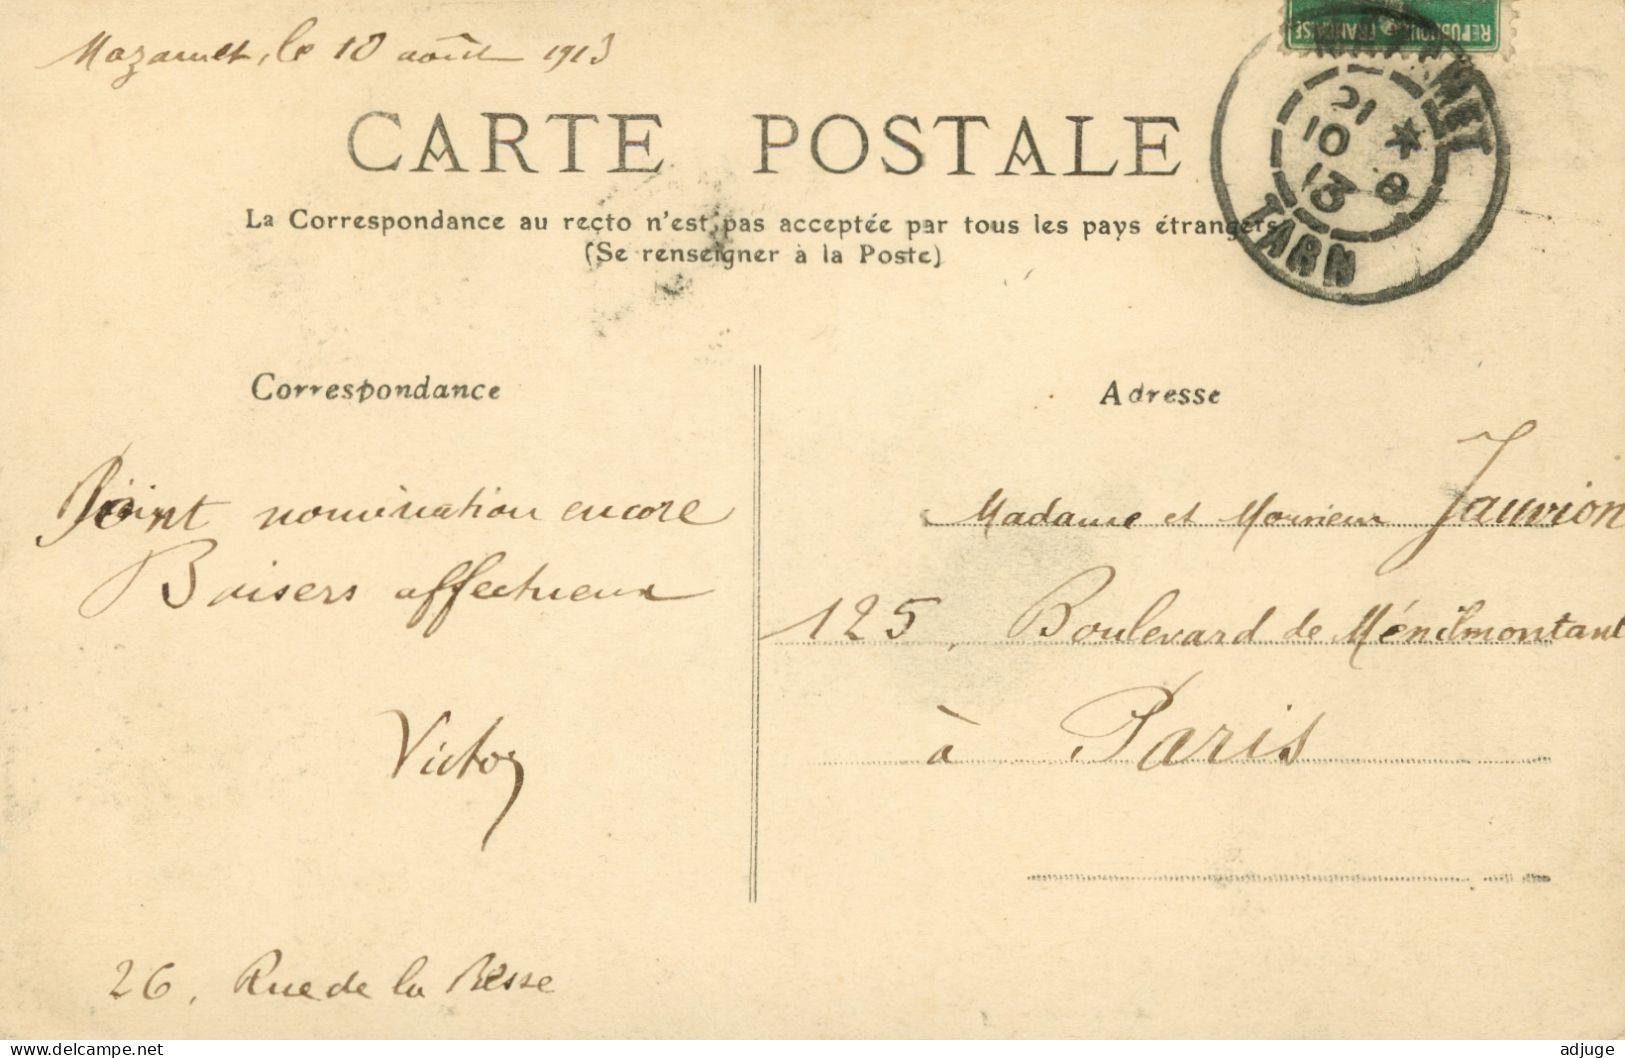 Mazamet, le 10 août 1913
REPUBLIQUE FRANÇAISE
MAZAMET
21
10 *
13 8
TARN
CARTE POSTALE
La Correspondance au recto n'est pas acceptée par tous les pays étrangers
(Se renseigner à la Poste)
Correspondance
Adresse
Point nomination encore
Baisers affectueux
Victor
26, Rue de la Resse
Madame et Monsieur Jauvion
125, Boulevard de Ménilmontant
à Paris
www.delcampe.net
adjuge